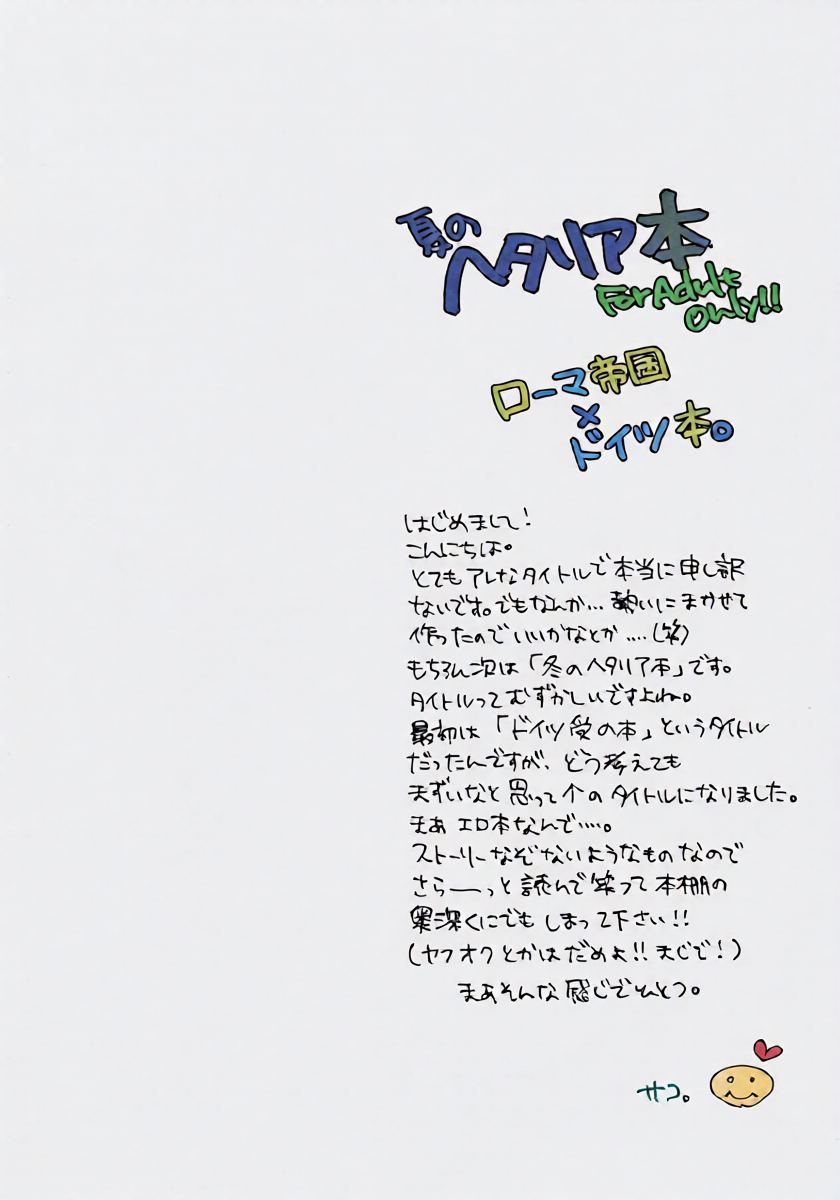 夏の
ヘタリア本
For Adult
Only!!
ローマ帝国
×
ドイツ本。
はじめまして!
こんにちは。
とてもアレなタイトルで本当に申し訳
ないです。でもなんか…勢いにまかせて
作ったのでいいかなとか….(笑)
もちろん次は「冬のヘタリア本」です。
タイトルってむずかしいですよね。
最初は「ドイツ受の本」というタイトル
だったんですが、どう考えても
まずいなと思って今のタイトルになりました。
まあエロ本なんで….。
ストーリーなぞないようなものなので
さら――っと読んで笑って本棚の
奥深くにでもしまって下さい!!
(ヤフオクとかはだめよ!!まじで!)
まあそんな感じでひとつ。
サコ。